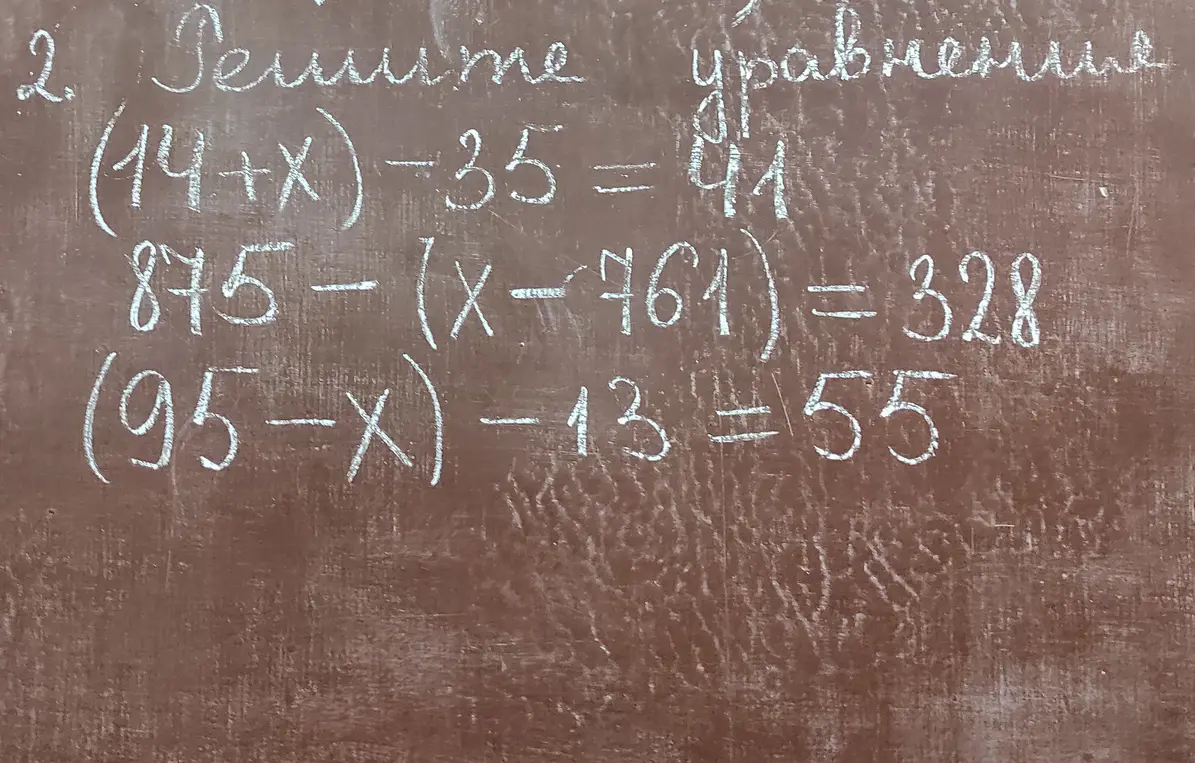 2. Решите уравнение
(14+x) - 35 = 41
875 - (x - 761) = 328
(95 - x) - 13 = 55